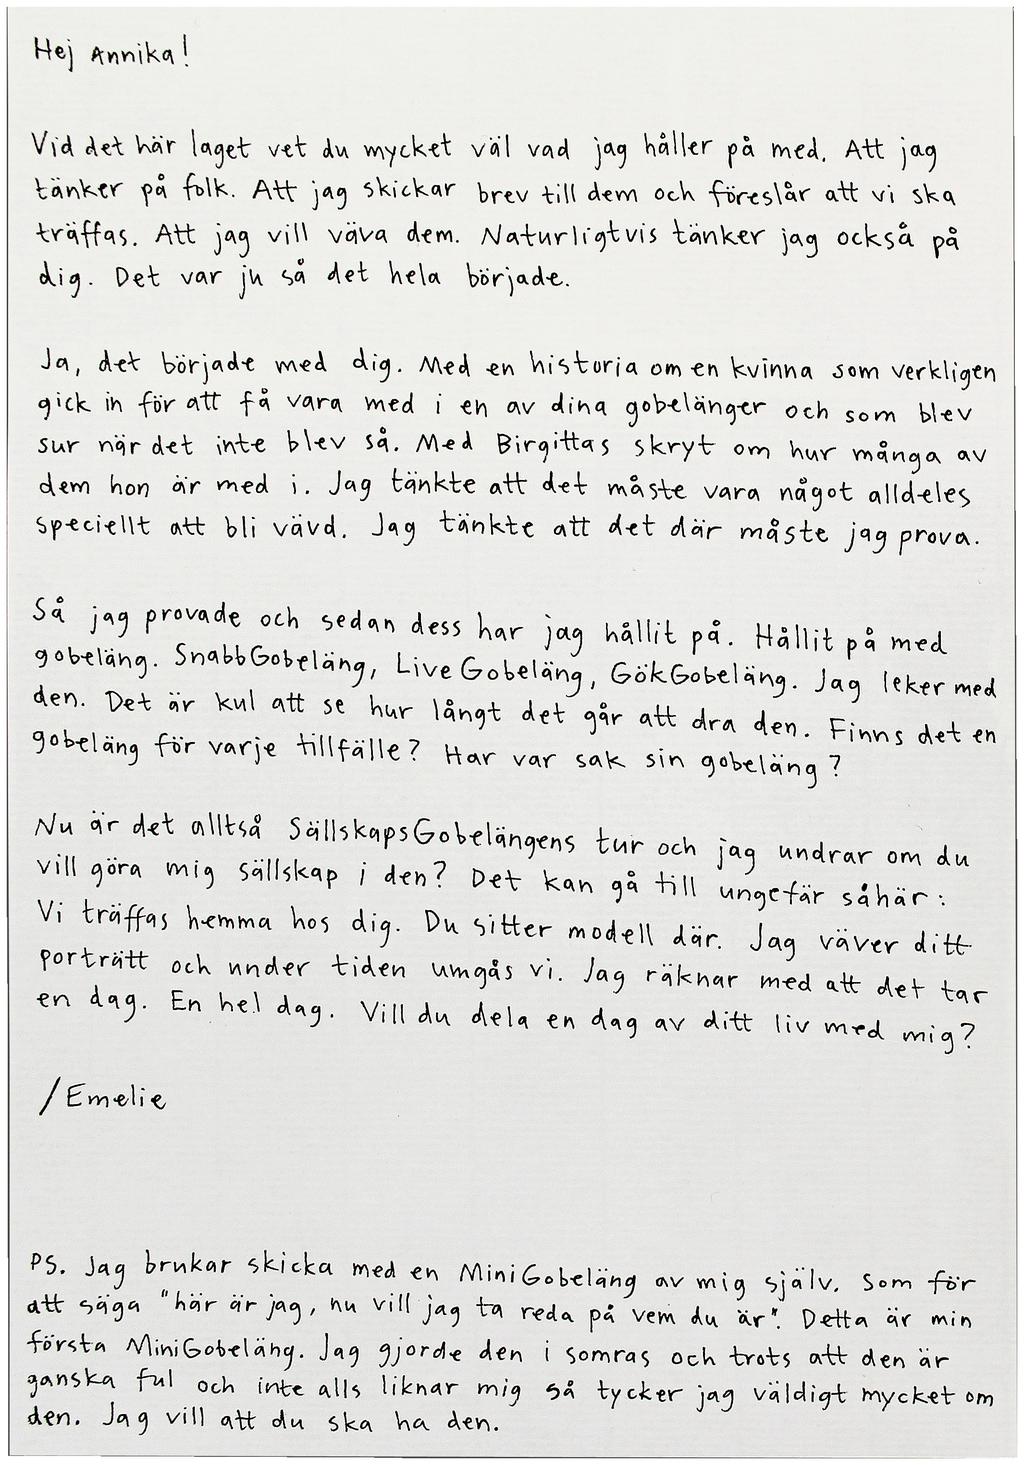 Hej Annika!
Vid det här laget vet du mycket väl vad jag håller på med. Att jag
tänker på folk. Att jag skickar brev till dem och föreslår att vi ska
träffas. Att jag vill väva dem. Naturligtvis tänker jag också på
dig. Det var ju så det hela började.
Ja, det började med dig. Med en historia om en kvinna som verkligen
gick in för att få vara med i en av dina gobelänger och som blev
sur när det inte blev så. Med Birgittas skryt om hur många av
dem hon är med i. Jag tänkte att det måste vara något alldeles
speciellt att bli vävd. Jag tänkte att det där måste jag prova.
Så jag provade och sedan dess har jag hållit på. Hållit på med
gobeläng. SnabbGobeläng, LiveGobeläng, GökGobeläng. Jag leker med
den. Det är kul att se hur långt det går att dra den. Finns det en
gobeläng för varje tillfälle? Har var sak sin gobeläng?
Nu är det alltså SällskapsGobelängens tur och jag undrar om du
vill göra mig sällskap i den? Det kan gå till ungefär såhär:
Vi träffas hemma hos dig. Du sitter modell där. Jag väver ditt
porträtt och under tiden umgås vi. Jag räknar med att det tar
en dag. En hel dag. Vill du dela en dag av ditt liv med mig?
/Emelie
PS. Jag brukar skicka med en MiniGobeläng av mig själv. Som för
att säga "här är jag, nu vill jag ta reda på vem du är". Detta är min
första MiniGobeläng. Jag gjorde den i somras och trots att den är
ganska ful och inte alls liknar mig så tycker jag väldigt mycket om
den. Jag vill att du ska ha den.